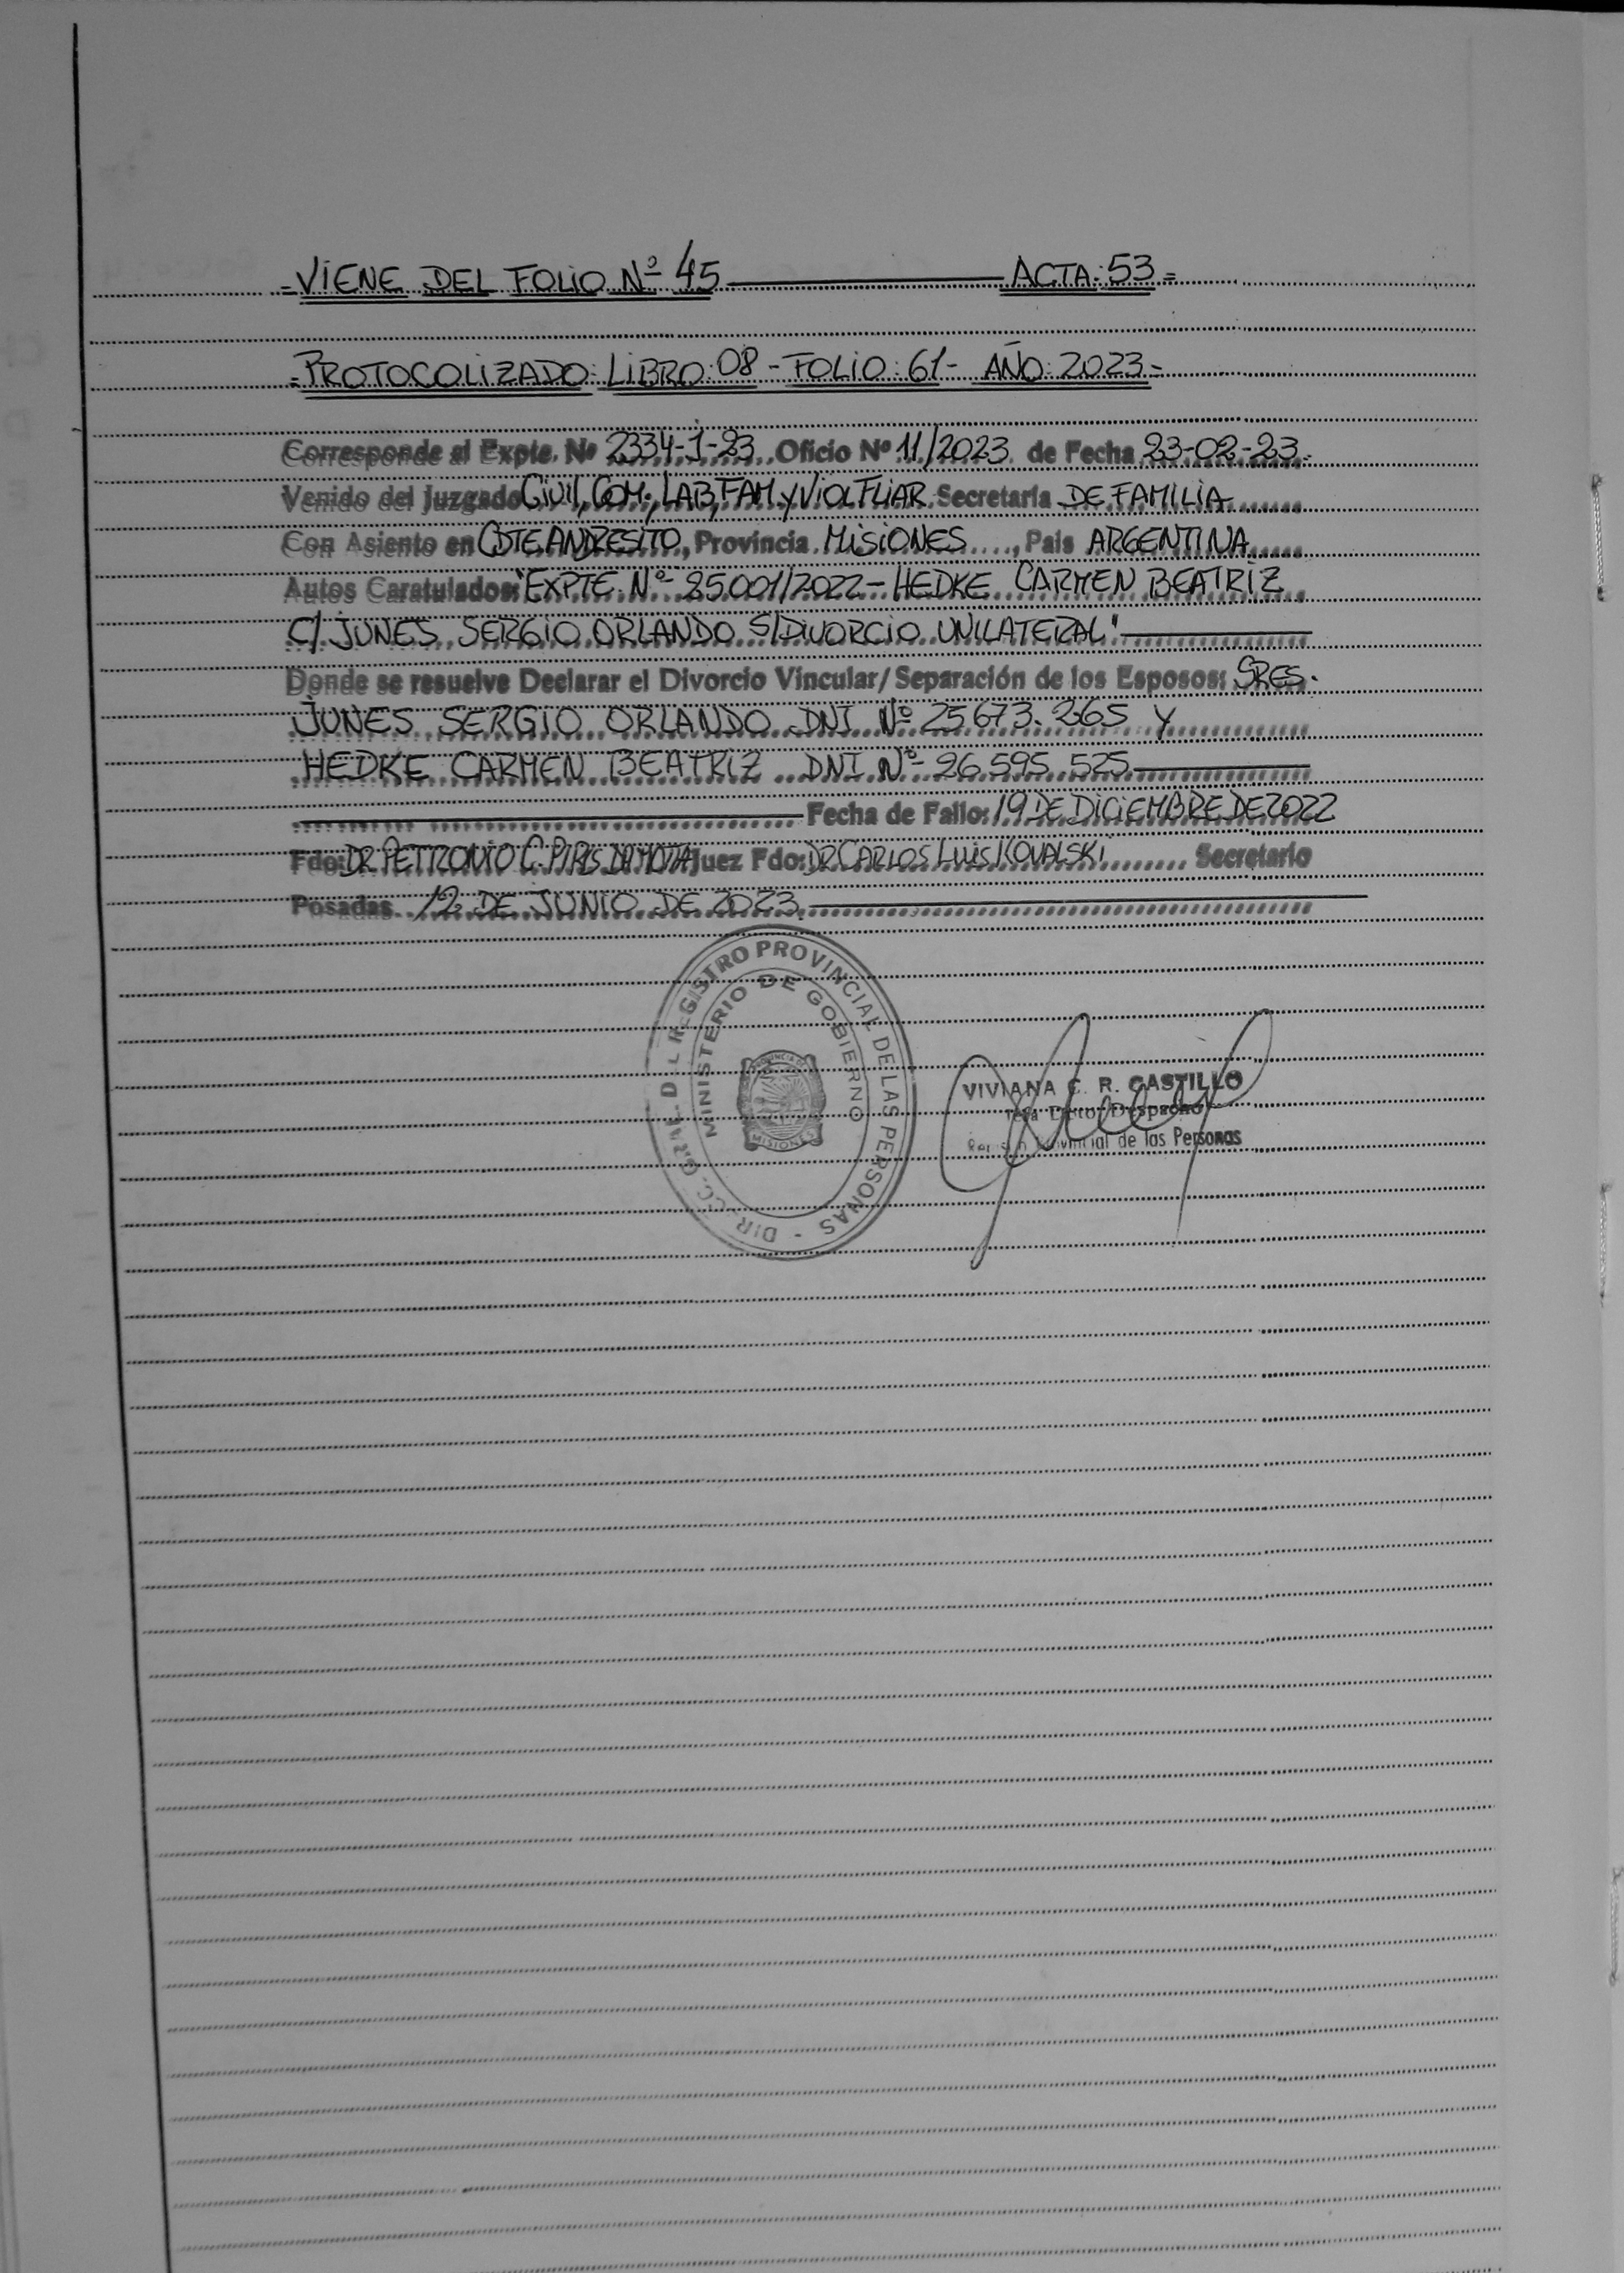 =VIENE DEL FOLIO Nº 45 ACTA: 53=
=PROTOCOLIZADO: LIBRO: 08 - FOLIO: 61 - AÑO: 2023=
Corresponde al Expte. Nº 2334-J-23 Oficio Nº 11/2023 de Fecha 23-02-23.
Venido del Juzgado Civil, Com., LAB, FAM. y Viol FLIAR Secretaría DE FAMILIA
Con Asiento en CDTE ANDRESITO, Provincia MISIONES, Pais ARGENTINA
Autos Caratulados: "EXPTE. Nº 25.001/2022 - HEDKE CARMEN BEATRIZ
C/ JUNES SERGIO ORLANDO S/DIVORCIO UNILATERAL"
Donde se resuelve Declarar el Divorcio Vincular/Separación de los Esposos: SRES.
JUNES SERGIO ORLANDO DNI Nº 25.673.265 y
HEDKE CARMEN BEATRIZ DNI Nº 26.595.525
Fecha de Fallo: 19 DE DICIEMBRE DE 2022
Fdo: DR. PETRONIO C. PIRIS DA MOTTA Juez Fdo: DR. CARLOS LUIS KOVALSKI Secretario
Posadas 12 DE JUNIO DE 2023.
DIRECC. GRAL. DEL REGISTRO PROVINCIAL DE LAS PERSONAS -
MINISTERIO DE GOBIERNO
PROVINCIA DE
MISIONES
VIVIANA C. R. CASTILLO
Despacho
Provincial de las Personas